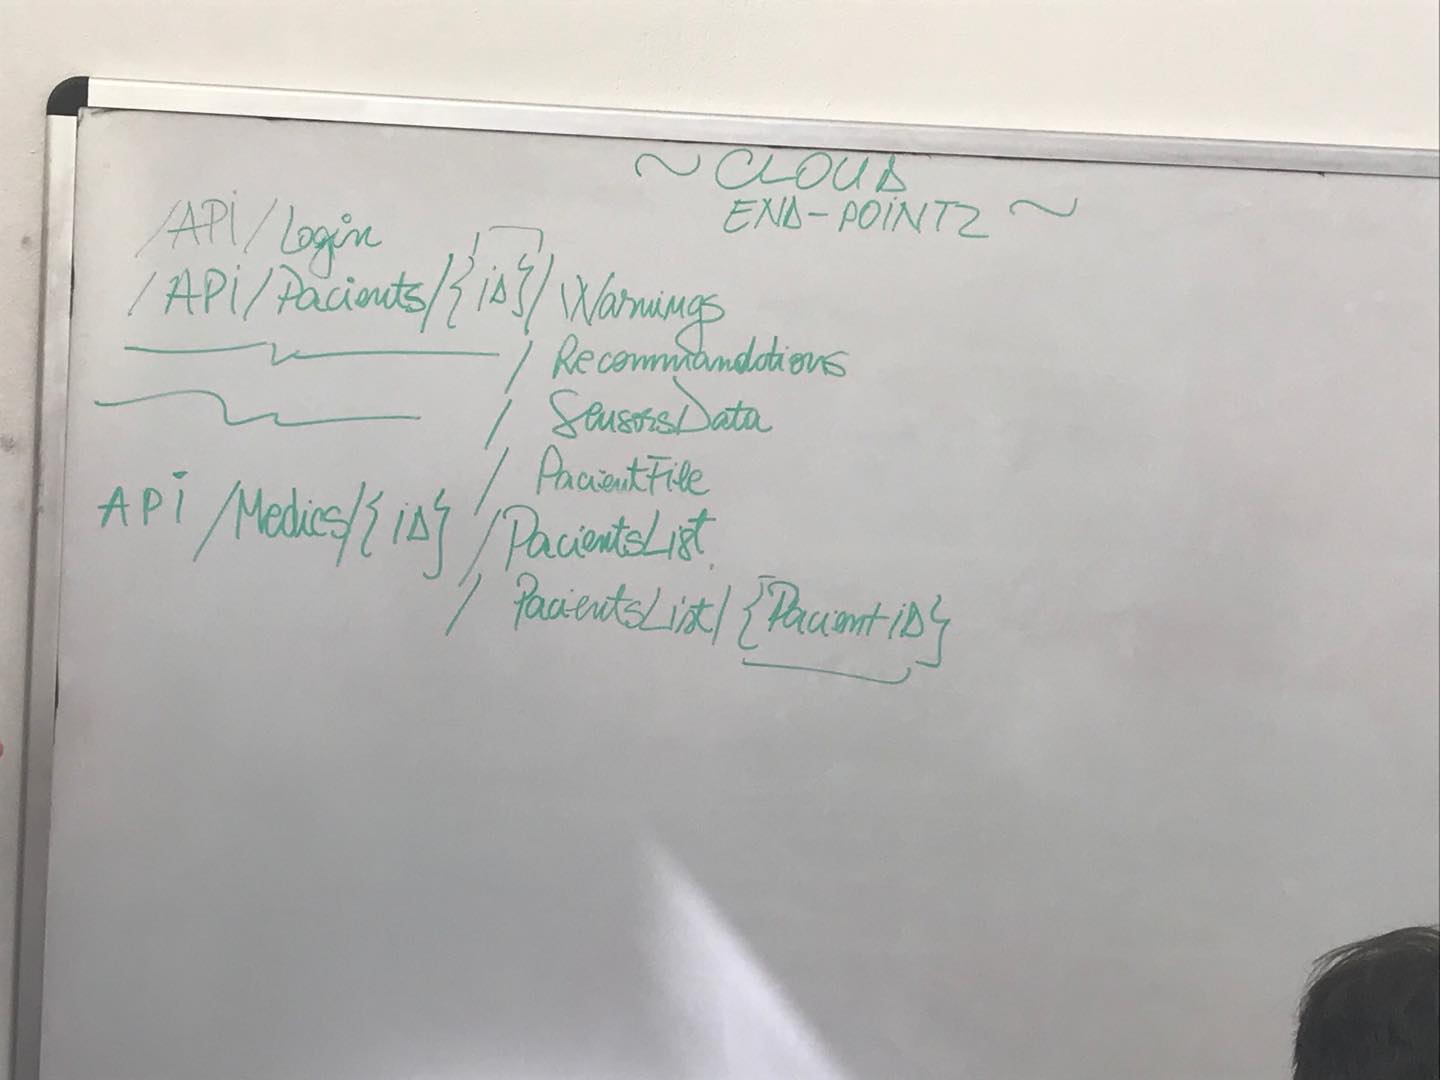 ~ CLOUD
END-POINTZ ~
/API/Login
/API/Pacients/{iD}/Warnings
/Recommandations
/SensorsData
/PacientFile
API/Medics/{iD}/PacientsList
/PacientsList/{PacientiD}